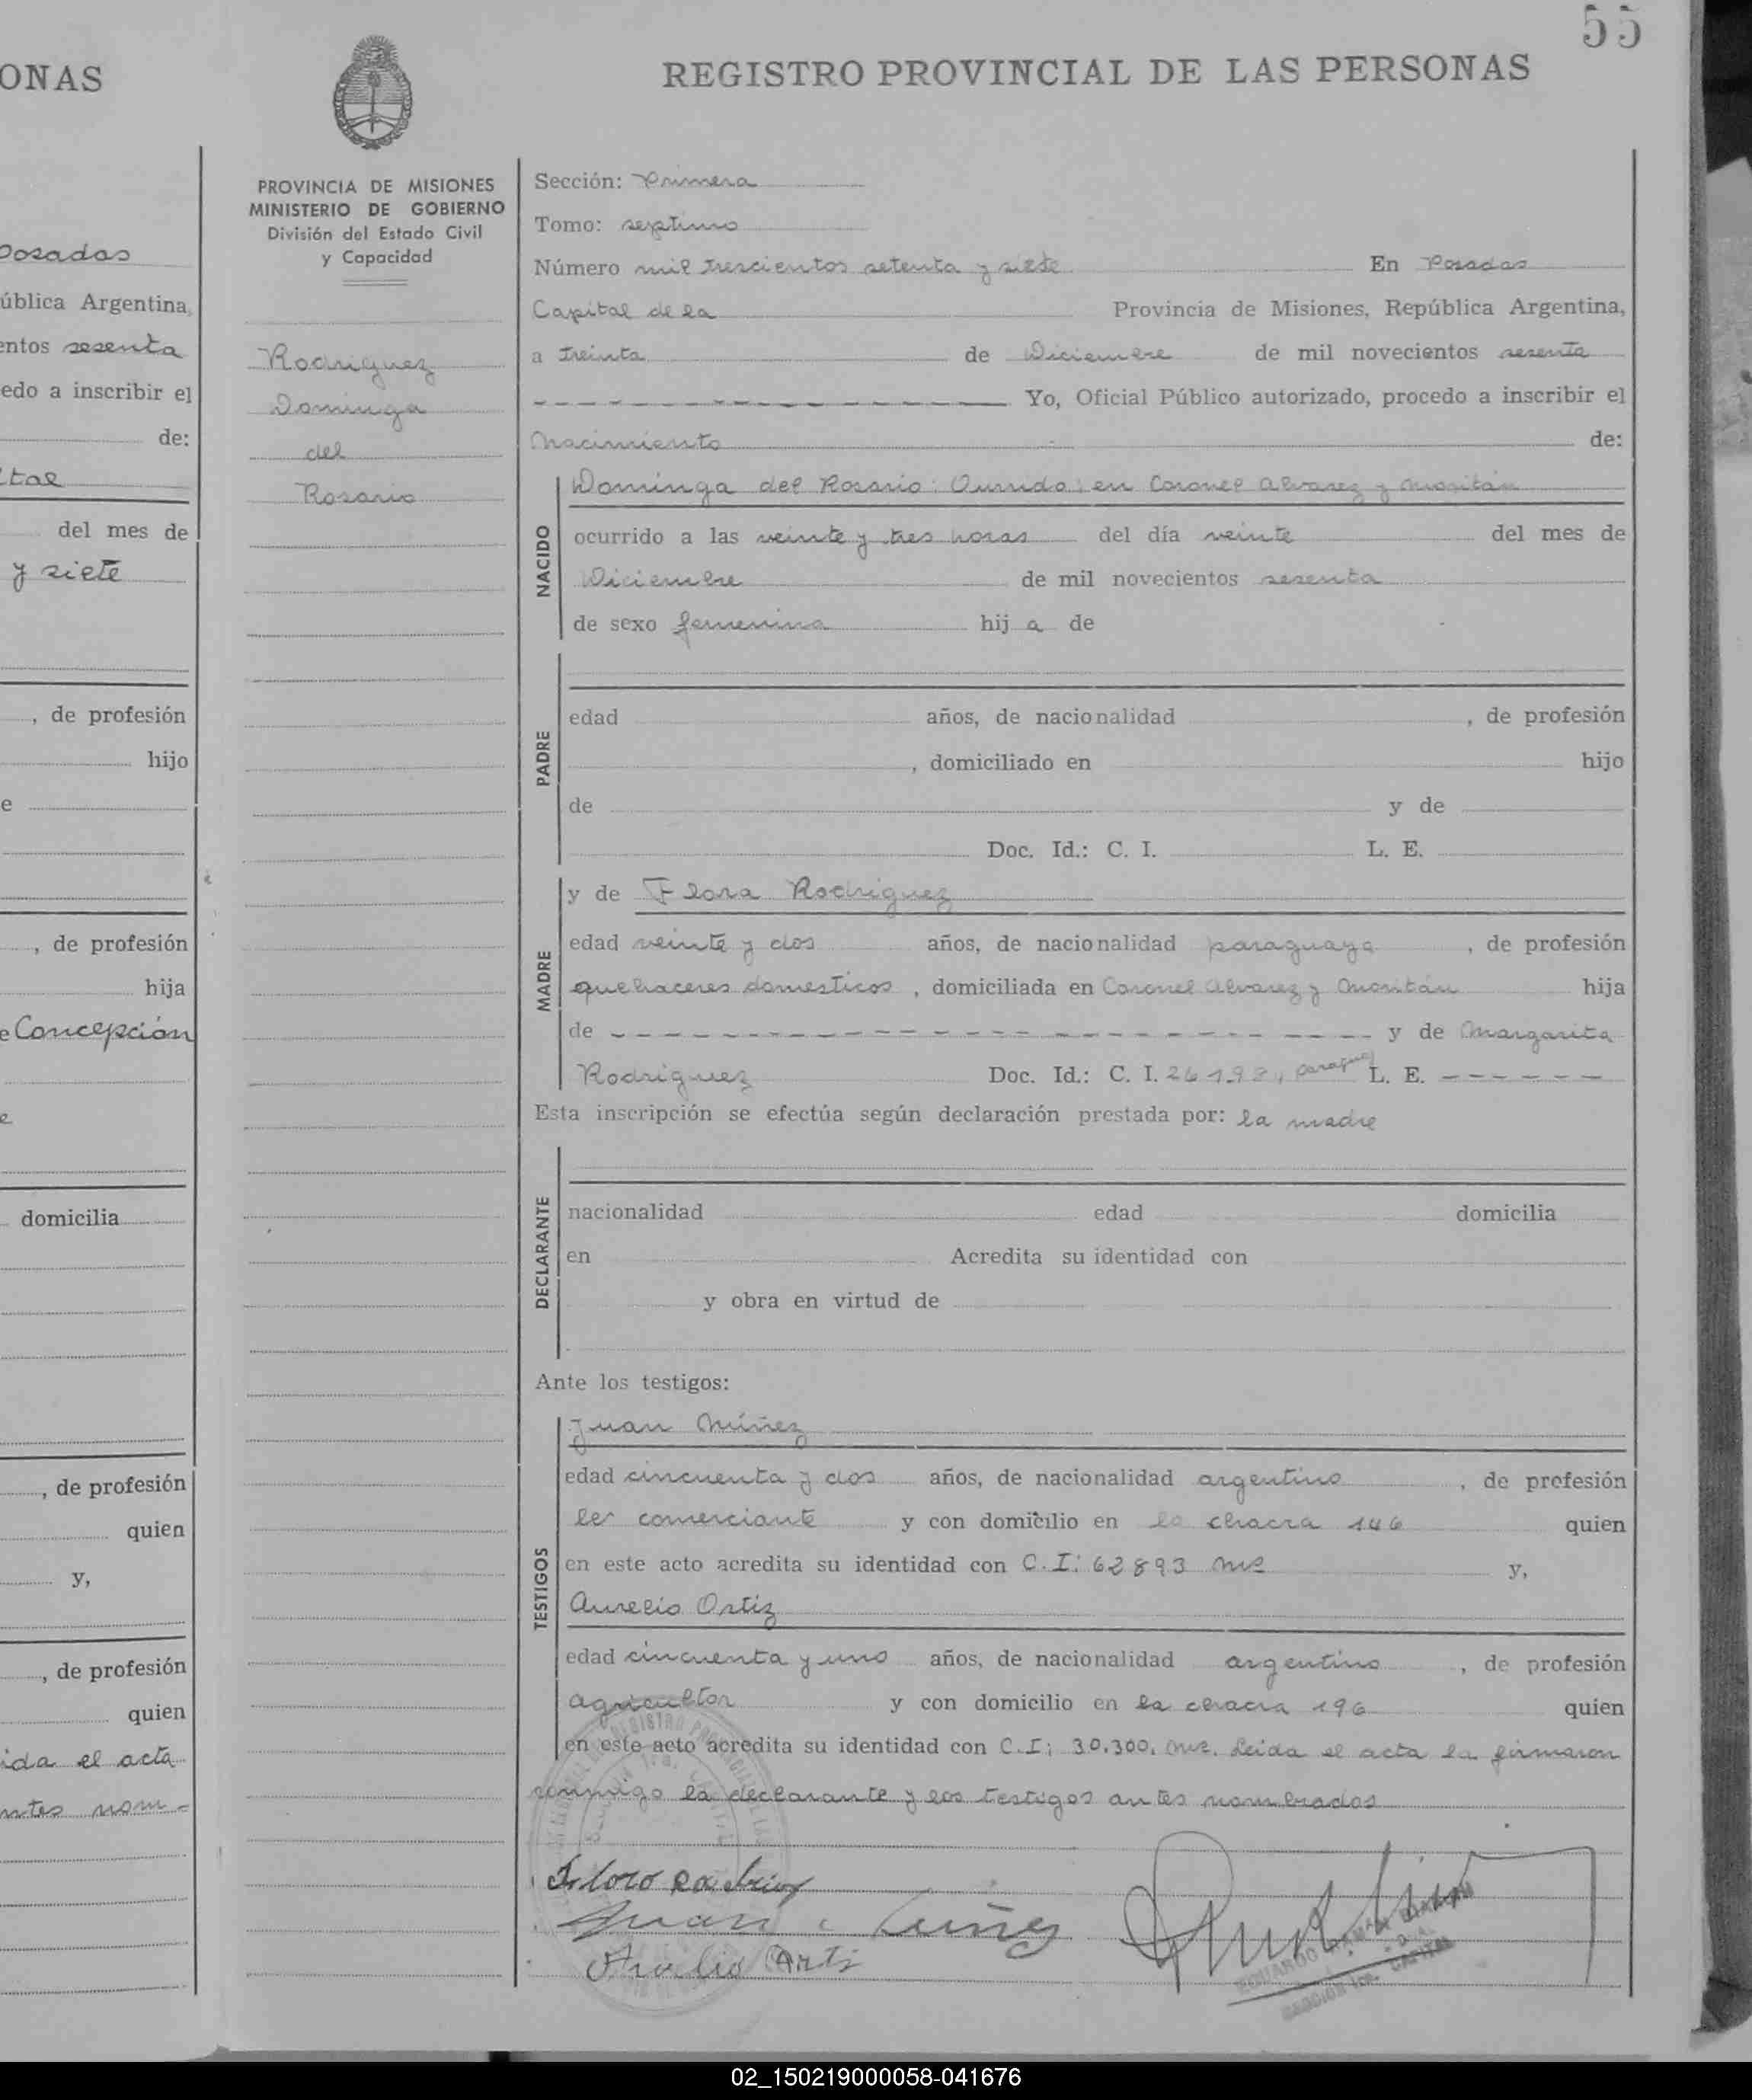 55
ONAS
Posadas
ública Argentina,
entos sesenta
edo a inscribir el
de:
ital
del mes de
y siete
, de profesión
hijo
e
, de profesión
hija
e Concepción
e
domicilia
, de profesión
quien
y,
, de profesión
quien
ida el acta
ntes nom-
REGISTRO PROVINCIAL DE LAS PERSONAS
PROVINCIA DE MISIONES
MINISTERIO DE GOBIERNO
División del Estado Civil
y Capacidad
Rodriguez
Dominga
del
Rosario
Sección: Primera
Tomo: septimo
Número mil trescientos setenta y siete En Posadas
Capital de la Provincia de Misiones, República Argentina,
a treinta de Diciembre de mil novecientos sesenta
Yo, Oficial Público autorizado, procedo a inscribir el
Nacimiento de:
NACIDO
Dominga del Rosario: Ocurrido: en Coronel Alvarez y Moritán
ocurrido a las veinte y tres horas del día veinte del mes de
Diciembre de mil novecientos sesenta
de sexo femenina hij a de
PADRE
edad años, de nacionalidad , de profesión
, domiciliado en hijo
de y de
Doc. Id.: C. I. L. E.
MADRE
y de Flora Rodriguez
edad veinte y dos años, de nacionalidad paraguaya , de profesión
quehaceres domesticos , domiciliada en Coronel Alvarez y Moritán hija
de - - - - - - - - - - - - - - - - - y de Margarita
Rodriguez Doc. Id.: C. I. L. E. - - - - - -
Esta inscripción se efectúa según declaración prestada por: la madre
DECLARANTE
nacionalidad edad domicilia
en Acredita su identidad con
y obra en virtud de
Ante los testigos:
TESTIGOS
Juan Núñez
edad cincuenta y dos años, de nacionalidad argentino , de profesión
comerciante y con domicilio en la chacra 146 quien
en este acto acredita su identidad con C.I: 62893 Mls y,
Aurelio Ortiz
edad cincuenta y uno años, de nacionalidad argentino , de profesión
agricultor y con domicilio en la chacra 196 quien
en este acto acredita su identidad con C.I; 30.300. Leida el acta la firmaron
conmigo la declarante y los testigos antes nombrados
Juan Núñez
SECCION 1ra. CAPITAL
02_150219000058-041676